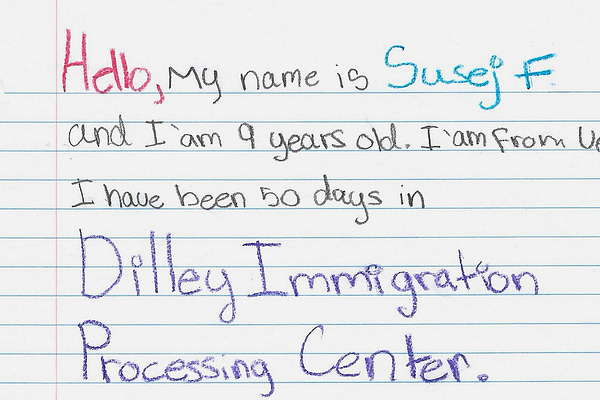 Hello, My name is Susej F.
and I'am 9 years old. I'am From
I have been 50 days in
Dilley Immigration
Processing Center.